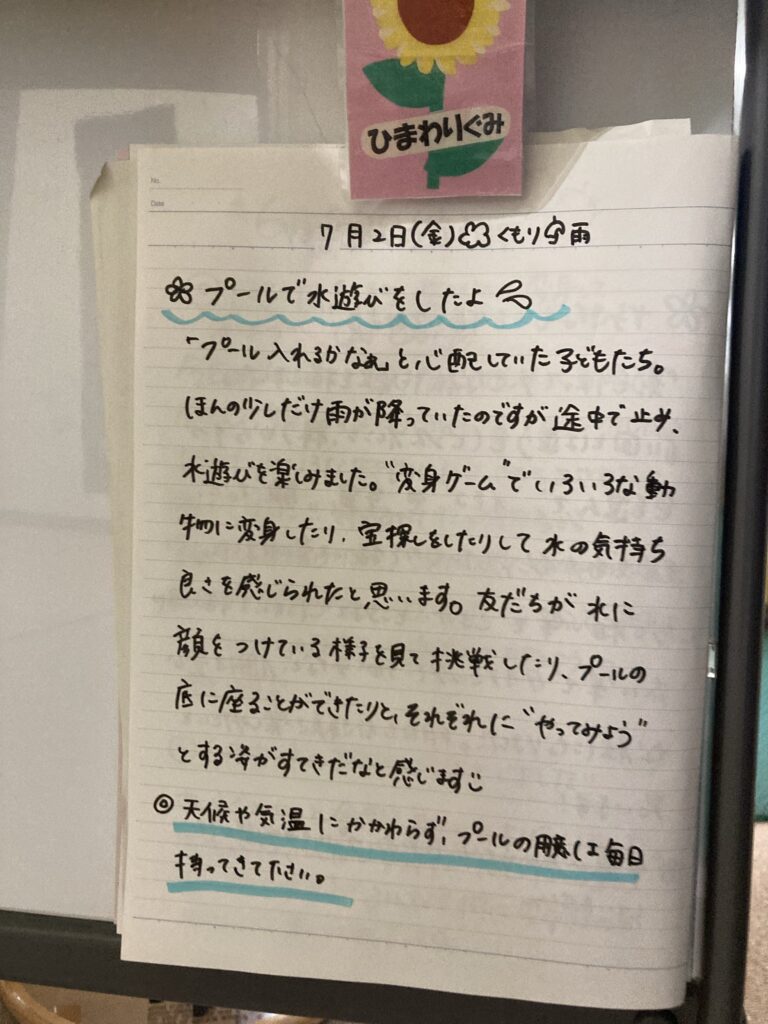 ひまわりぐみ
No.
Date
7月2日(金)くもり雨
プールで水遊びをしたよ
「プール入れるかなぁ」と心配していた子どもたち。
ほんの少しだけ雨が降っていたのですが途中で止み、
水遊びを楽しみました。"変身ゲーム"でいろいろな動
物に変身したり、宝探しをしたりして水の気持ち
良さを感じられたと思います。友だちが水に
顔をつけている様子を見て挑戦したり、プールの
底に座ることができたりと、それぞれに"やってみよう"
とする姿がすてきだなと感じます
◎天候や気温にかかわらず、プールの用意は毎日
持ってきて下さい。